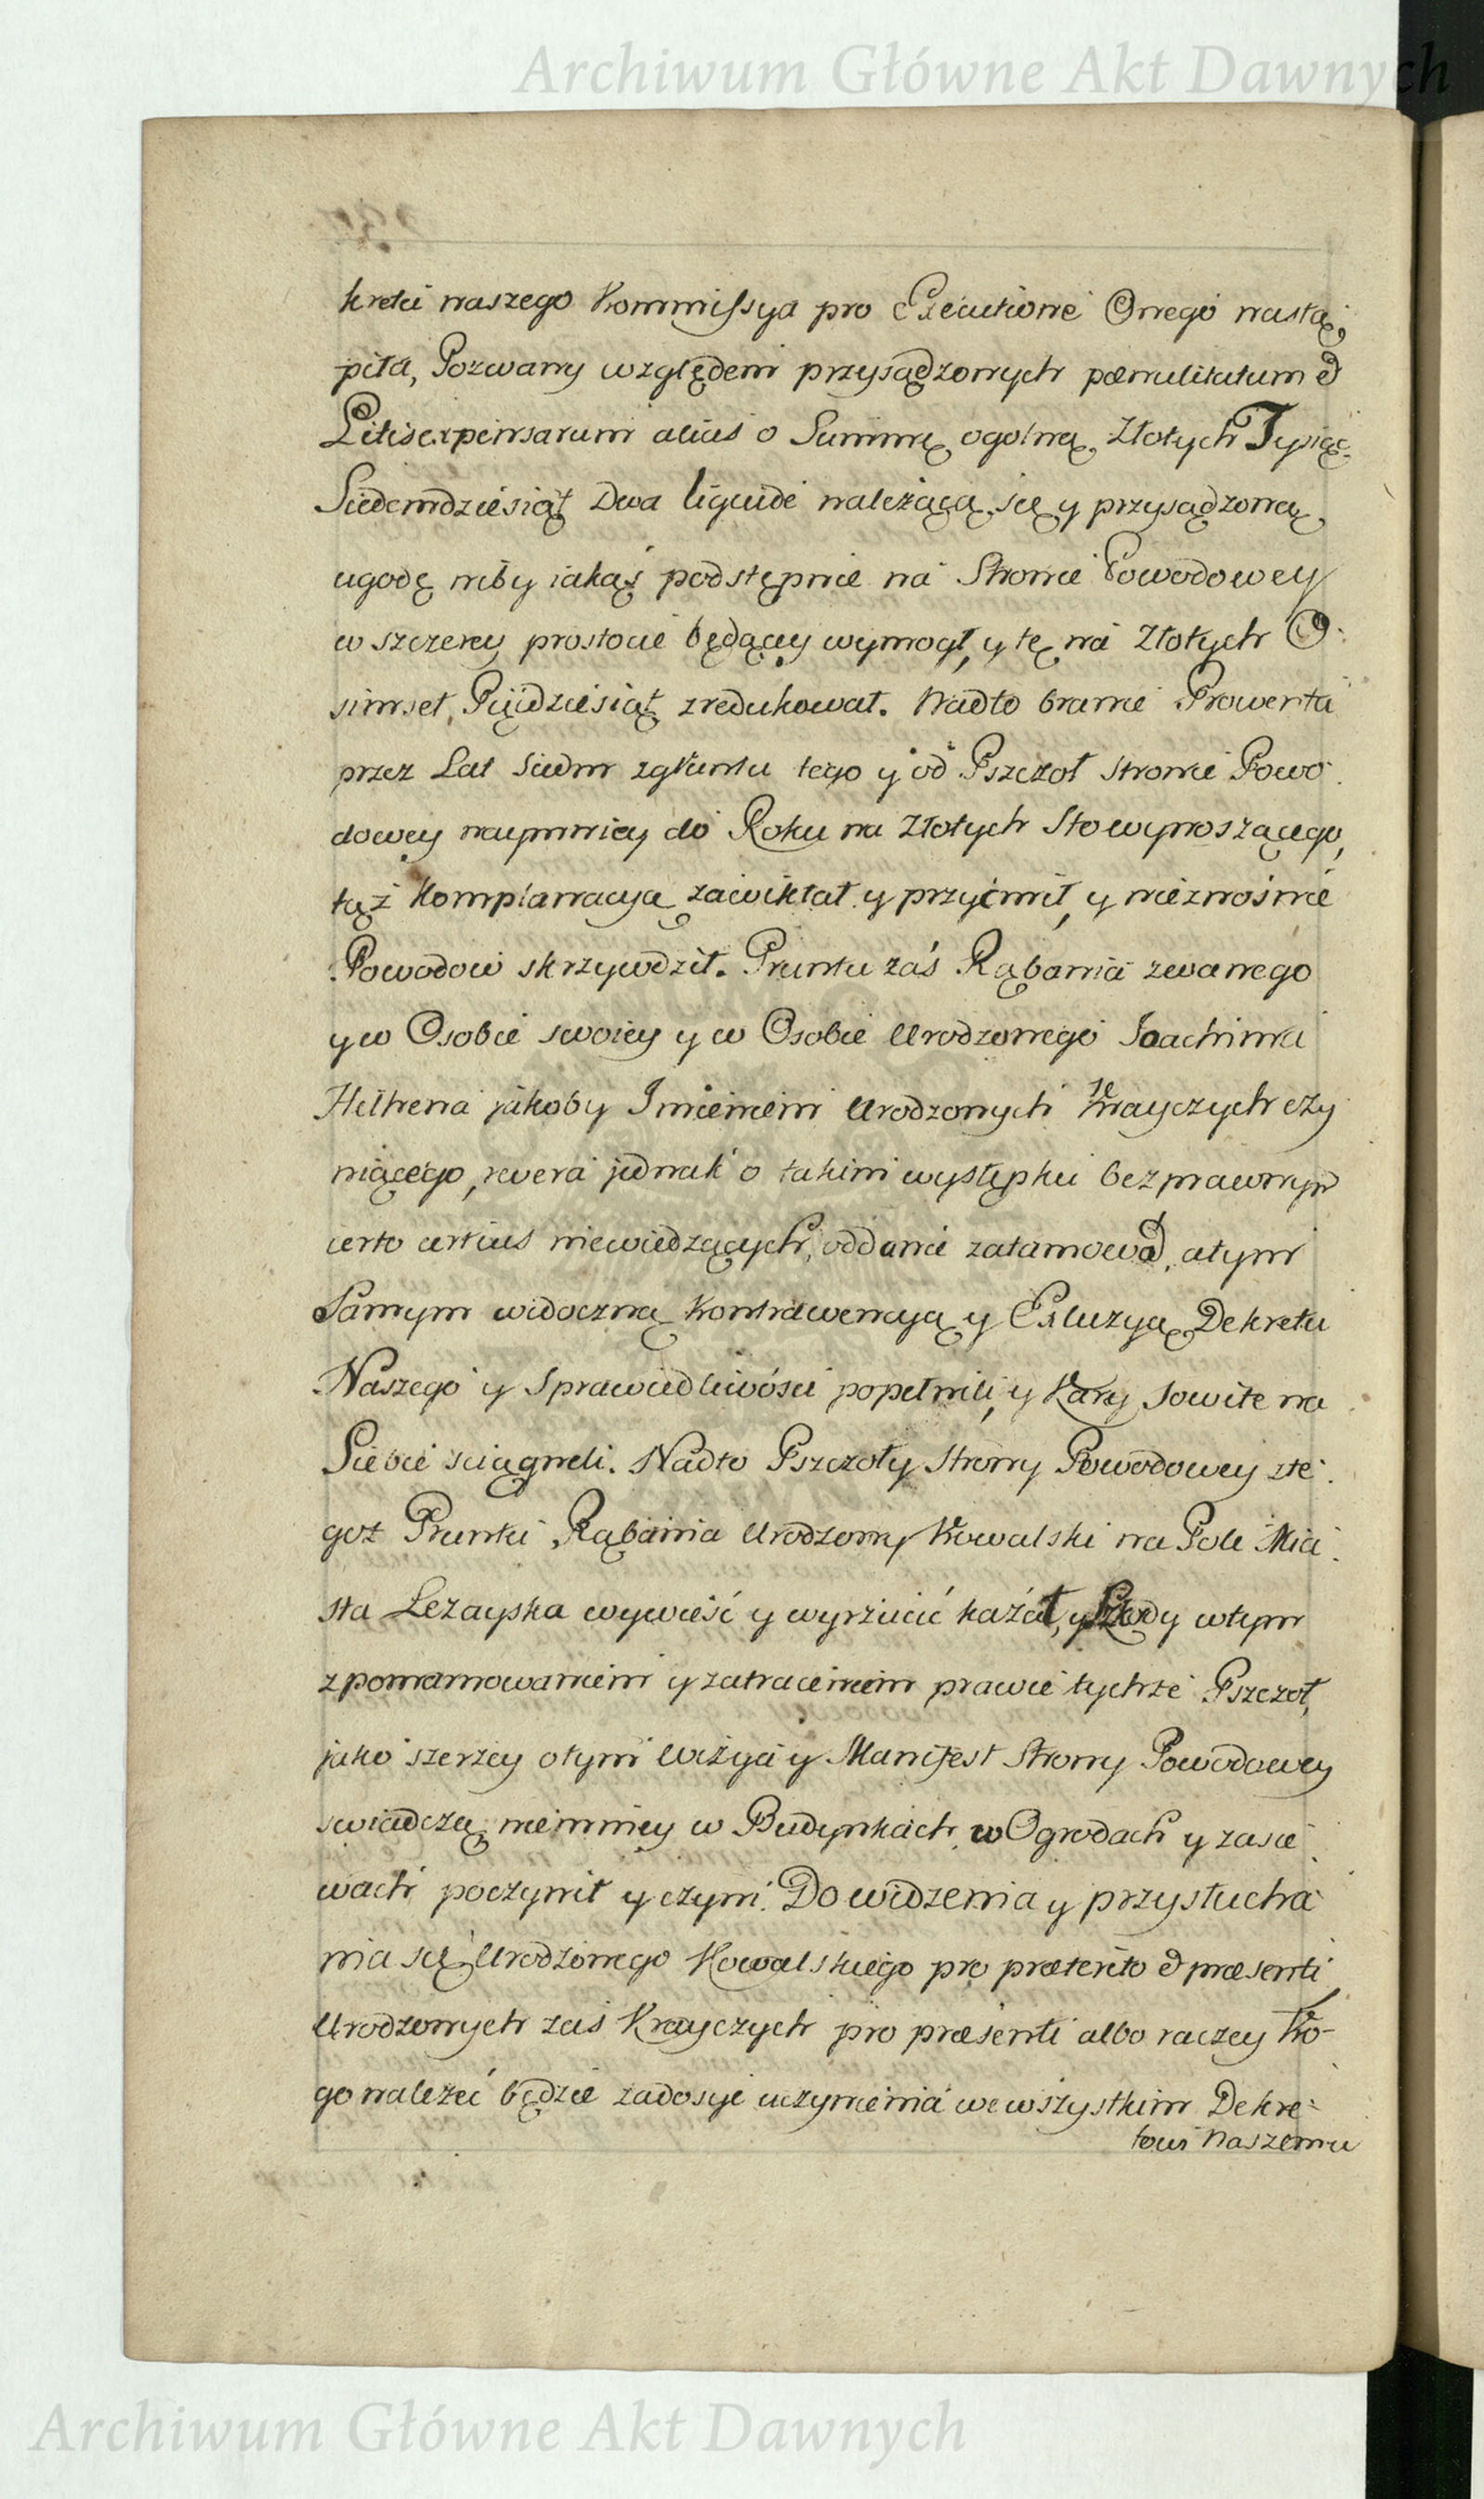 Archiwum Główne Akt Dawnych
kretu naszego Kommissya pro Executione Onego nastą,
piła, Pozwany względem przysądzonych pœnalitatum &
Litisexpensarum alias o Summę ogolną Złotych Tysiąc
Siedmdziesiąt Dwa liquide należącą się y przysądzoną
ugodę niby iakąś podstępnie na Stronie Powodowey
w szczerey prostocie będącey wymogł, y tę na Złotych O:
simset Pięćdziesiąt zredukował. Nadto branie Prowentu
przez Lat Siedm zgruntu tego y od Pszczoł stronie Powo
dowey naymniey do Roku na Złotych Sto wynoszącego,
tąż komplanacyą zawikłał y przyćmił, y nieznośnie
Powodow skrzywdził. Gruntu zaś Rąbania zwanego
y w Osobie swoiey y w Osobie Urodzonego Joachima
Heltrena jakoby Imieniem Urodzonych Krayczych czy
niącego, revera jednak o takim występku bezprawnym
certo certius niewiedzących, oddanie zatamował, atym
Samym widoczną Kontrawencyą y Eluzyą Dekretu
Naszego y Sprawiedliwości popełnili, y Kary Sowite na
Siebie sciągneli. Nadto Pszczoły Strony Powodowey zte
goż Gruntu Rąbania Urodzony Kowalski na Pole Mia
sta Leżayska wywieść y wyrzucić kazał, y Szkody wtym
zpomarnowaniem y zatraceniem prawie tychże Pszczoł,
jako szerzey otym Wizya y Manifest Strony Powodowey
swiadczą niemniey w Budynkach w Ogrodach y zasie
wach poczynił y czyni. Do widzenia y przysłucha
nia się Urodzonego Kowalskiego pro præterito & præsenti
Urodzonych zaś Krayczych pro præsenti albo raczey Ko-
go należeć będzie zadosyć uczynienia we wszystkim Dekre:
towi Naszemu
Archiwum Główne Akt Dawnych